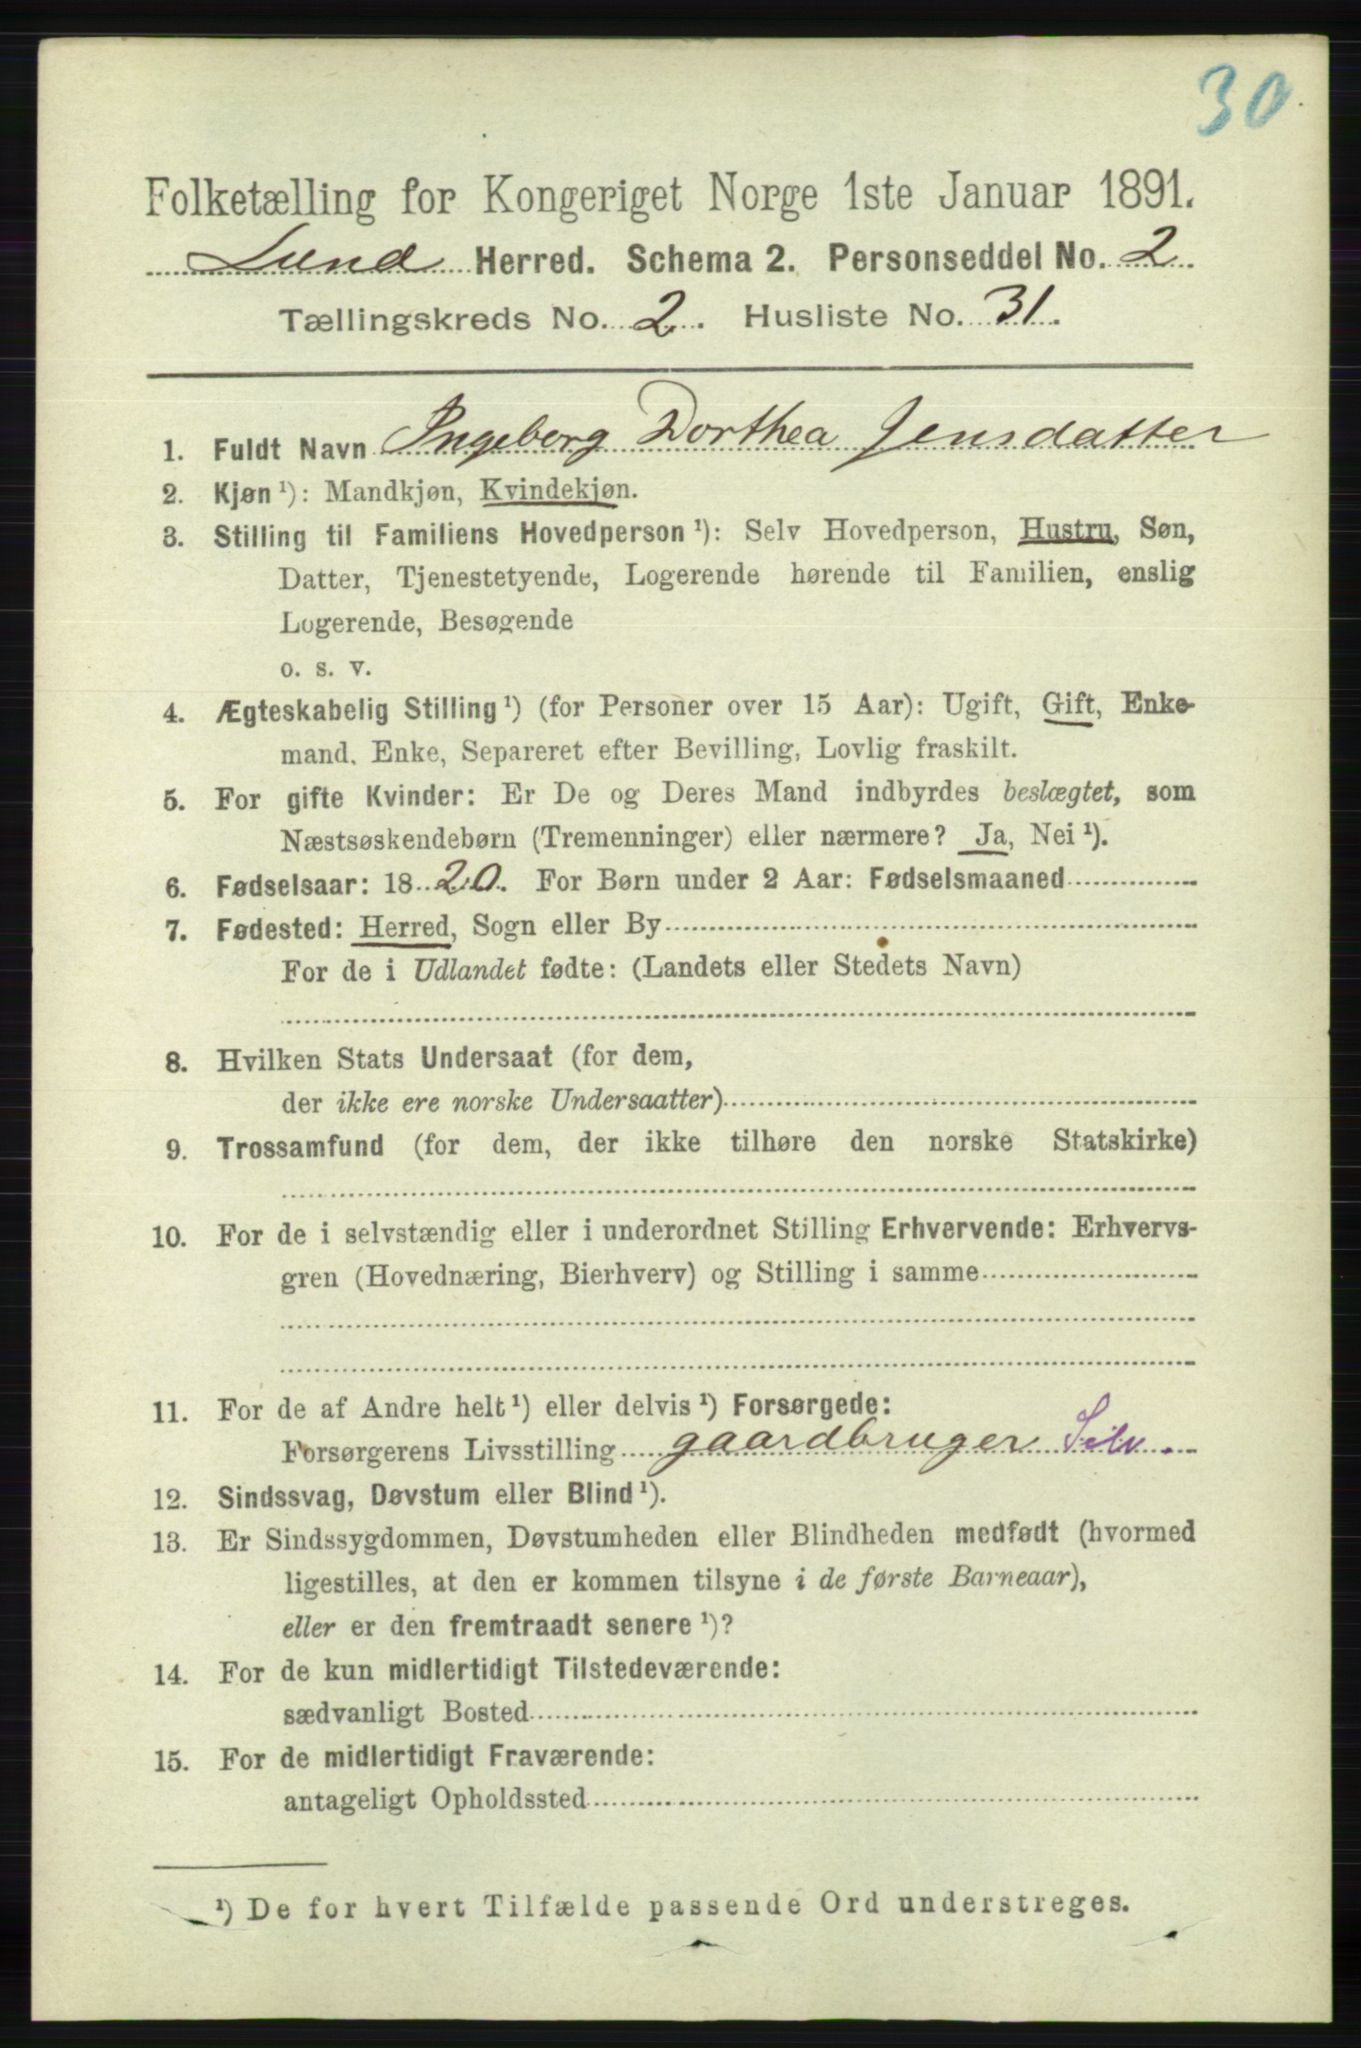 30
Folketælling for Kongeriget Norge 1ste Januar 1891.
Lund Herred. Schema 2. Personseddel No. 2
Tællingskreds No. 2. Husliste No. 31.
1. Fuldt Navn Ingeborg Dorthea Jensdatter
2. Kjøn ¹): Mandkjøn, Kvindekjøn.
3. Stilling til Familiens Hovedperson ¹): Selv Hovedperson, Hustru, Søn,
Datter, Tjenestetyende, Logerende hørende til Familien, enslig
Logerende, Besøgende
o. s. v.
4. Ægteskabelig Stilling ¹) (for Personer over 15 Aar): Ugift, Gift, Enke-
mand, Enke, Separeret efter Bevilling, Lovlig fraskilt.
5. For gifte Kvinder: Er De og Deres Mand indbyrdes beslægtet, som
Næstsøskendebørn (Tremenninger) eller nærmere? Ja, Nei ¹).
6. Fødselsaar: 1820. For Børn under 2 Aar: Fødselsmaaned
7. Fødested: Herred, Sogn eller By
For de i Udlandet fødte: (Landets eller Stedets Navn)
8. Hvilken Stats Undersaat (for dem,
der ikke ere norske Undersaatter)
9. Trossamfund (for dem, der ikke tilhøre den norske Statskirke)
10. For de i selvstændig eller i underordnet Stilling Erhvervende: Erhvervs-
gren (Hovednæring, Bierhverv) og Stilling i samme
11. For de af Andre helt ¹) eller delvis ¹) Forsørgede:
Forsørgerens Livsstilling gaardbruger Selv.
12. Sindssvag, Døvstum eller Blind ¹).
13. Er Sindssygdommen, Døvstumheden eller Blindheden medfødt (hvormed
ligestilles, at den er kommen tilsyne i de første Barneaar),
eller er den fremtraadt senere ¹)?
14. For de kun midlertidigt Tilstedeværende:
sædvanligt Bosted
15. For de midlertidigt Fraværende:
antageligt Opholdssted
¹) De for hvert Tilfælde passende Ord understreges.